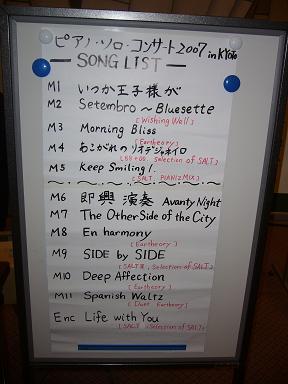 ピアノ・ソロ・コンサート2007 in KYOTO
— SONG LIST —
M1 いつか王子様が
M2 Setembro ~ Bluesette
[Wishing Well]
M3 Morning Bliss
[Eartheory]
M4 あこがれのリオデジャネイロ
Selection of SALT]
M5 Keep Smiling!
[SALT PIANIZMIX]
M6 即興演奏 Avanty Night
M7 The Other Side of the City
M8 En harmony
[Eartheory]
M9 SIDE by SIDE
[SALT Selection of SALT]
M10 Deep Affection
[Eartheory]
M11 Spanish Waltz
[Duet Eartheory]
Enc Life with You
[SALT Selection of SALT]